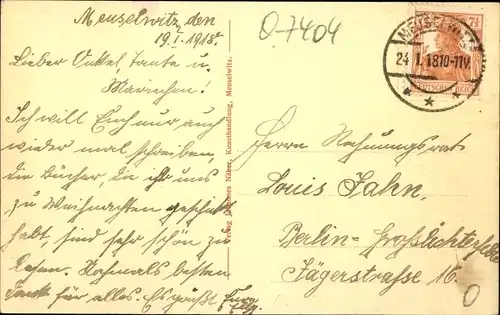 Meuselwitz, den
19. I. 1918.
Lieber Onkel, Tante u.
Mariechen!
Ich will Euch nur auch
wieder mal schreiben,
die Bücher, die ihr uns
zu Weihnachten geschenkt
habt, sind sehr schön zu
lesen. Nochmals besten
Dank für alles. Es grüßt Eure
O-7404
Verlag Näser, Kunsthandlung, Meuselwitz.
MEUSELWITZ
24. 1. 18 10-11V.
7½
DEUTSCHES REICH
Herrn Rechnungsrat
Louis Jahn,
Berlin-Großlichterfelde
Jägerstraße 16.
O